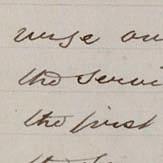 urge on
the servi
the first
the